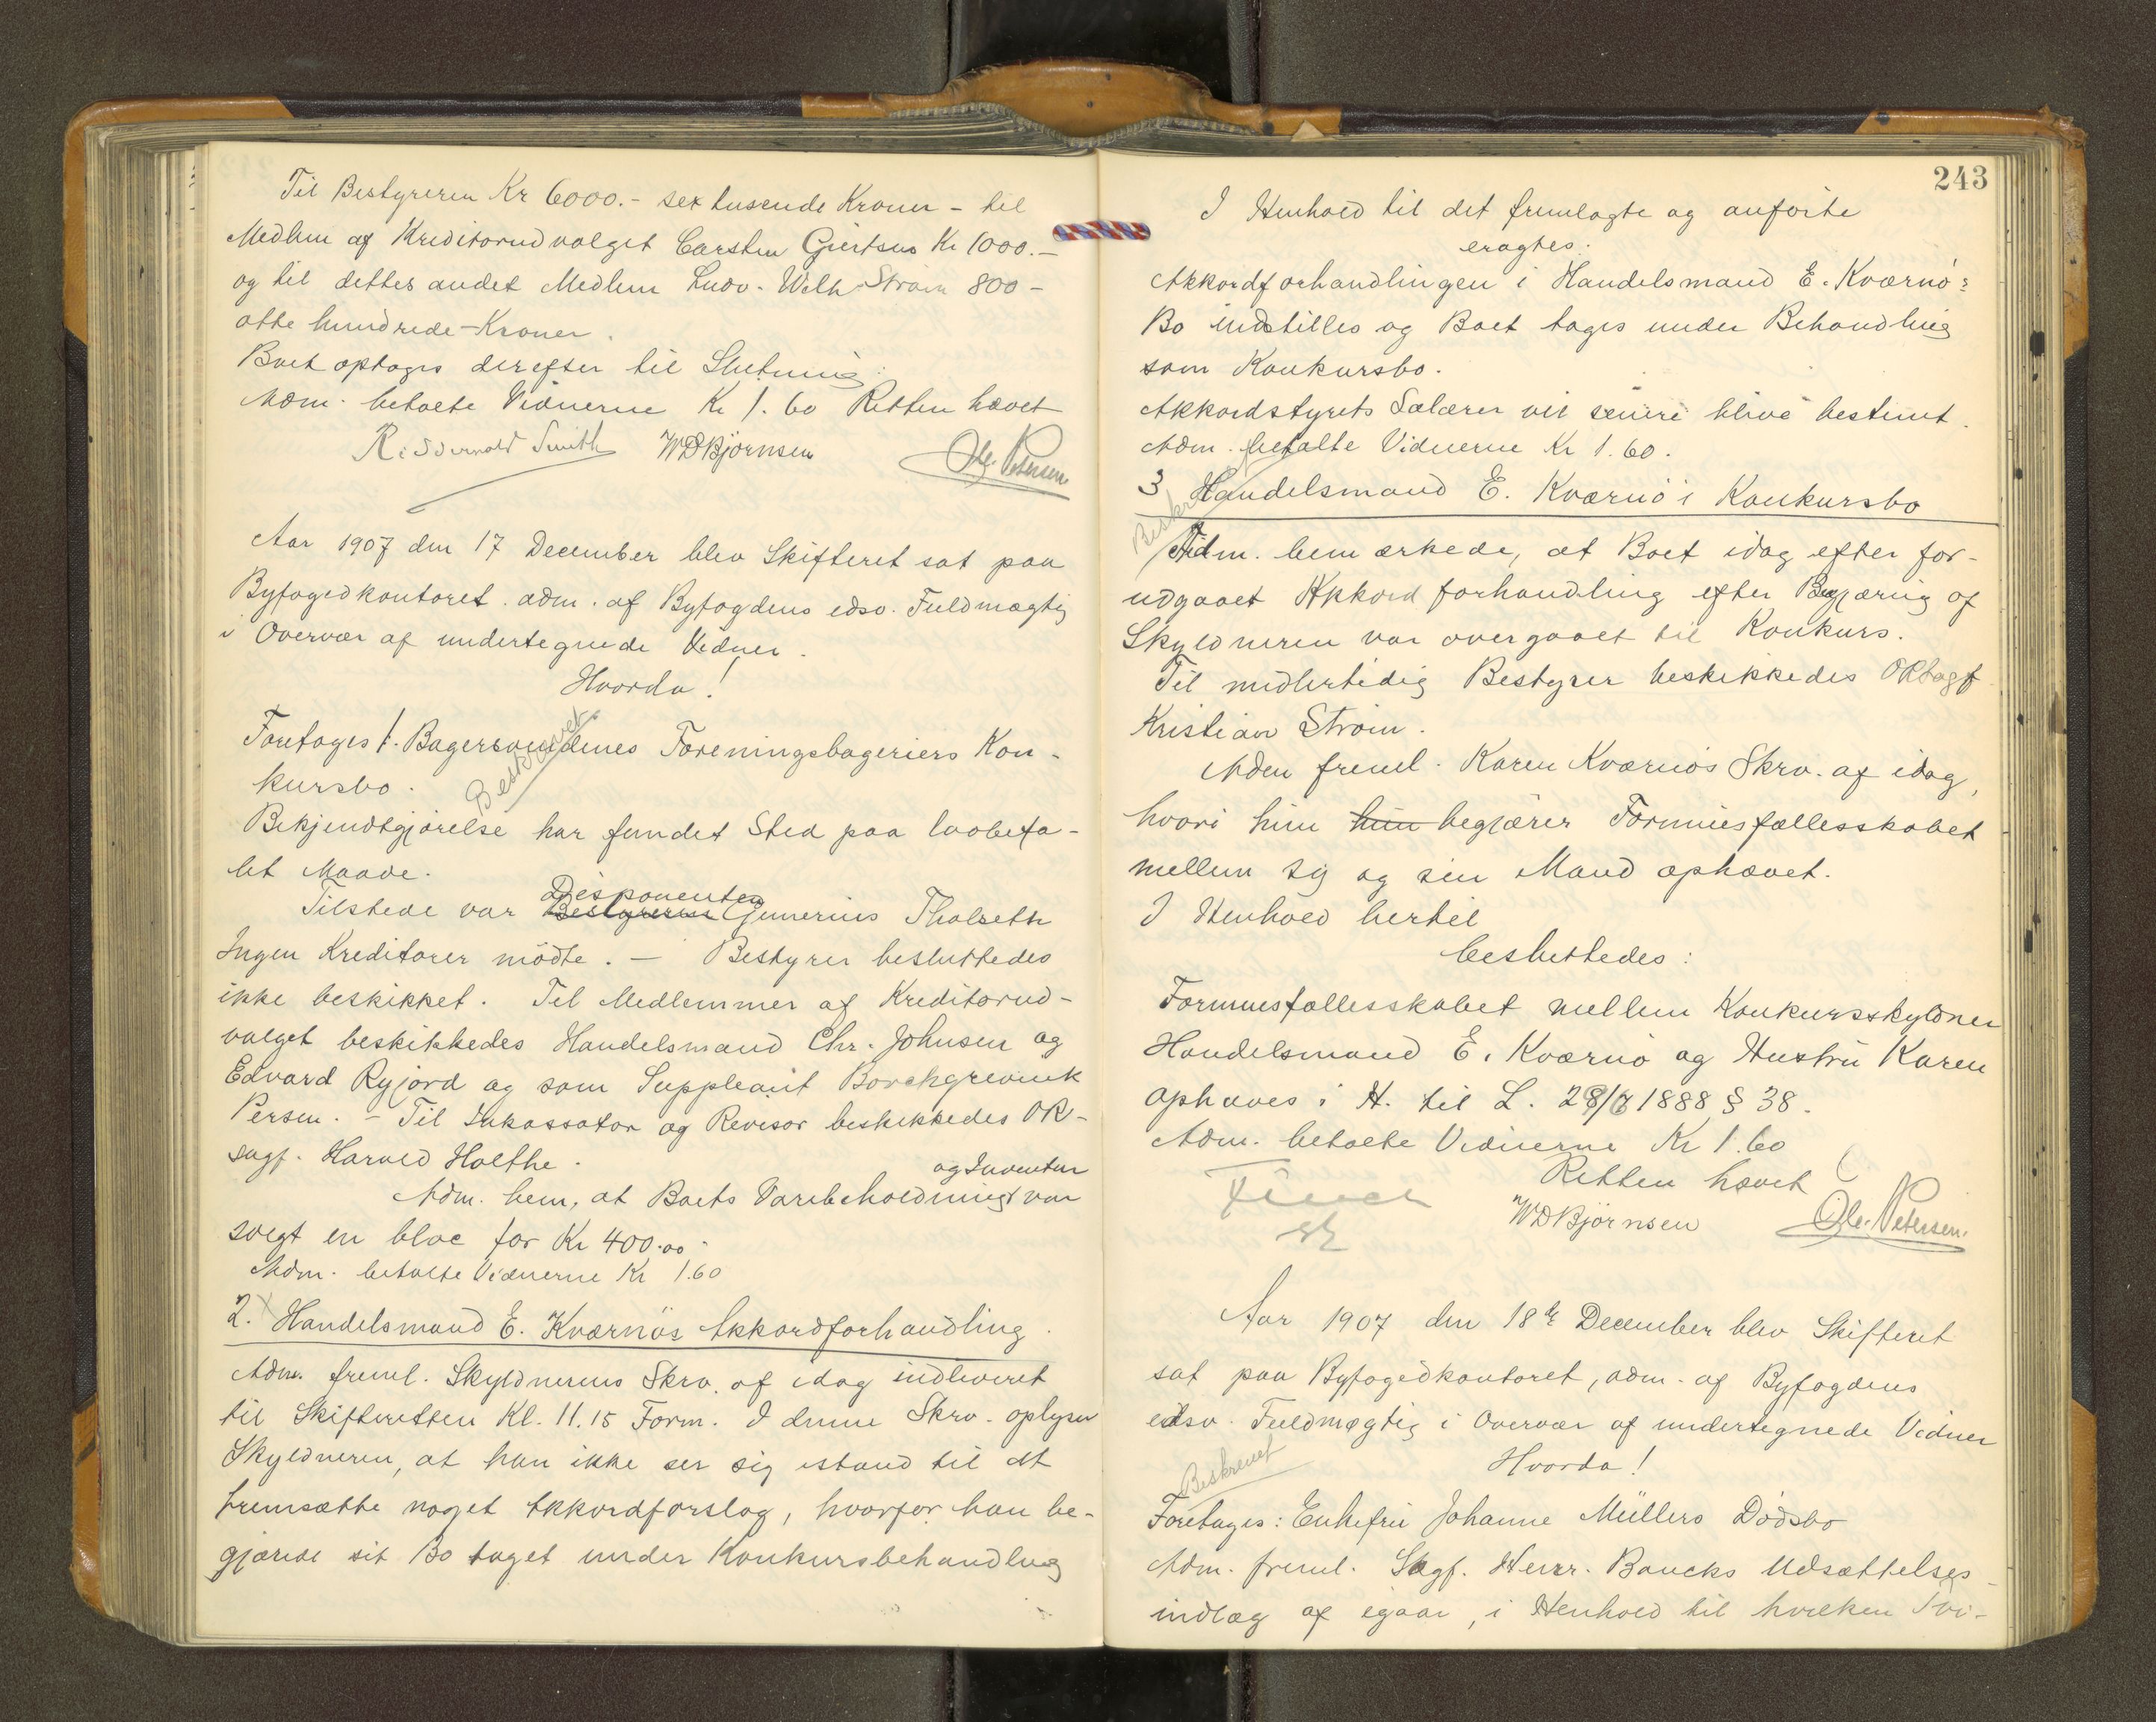 Til Bestyreren Kr 6000.- sex tusende Kroner - til
Medlem af Kreditorudvalget Carsten Giertsen Kr 1000.-
og til dettes andet Medlem Ludv. Wilh Strøm 800 -
otte hundrede-Kroner.
Boet optages derefter til Slutning.
Adm. betalte Vidnerne Kr 1.60 Retten hævet
Smith WDBjørnsen Ole Petersen
Aar 1907 den 17 December blev Skifteret sat paa
Byfogedkontoret adm. af Byfogdens edsv. Fuldmægtig
i Overvær af undertegnede Vidner.
Hvorda!
Beskrevet
Foretages 1. Bagersvendenes Foreningsbageriers Kon-
kursbo.
Bekjendtgjørelse har fundet Sted paa lovbefa-
let Maade.
Disponenten
Tilstede var Bestyreren Gunerius Tholseth
Ingen Kreditorer mødte. - Bestyrer besluttedes
ikke beskikket. Til Medlemmer af Kreditorud-
valget beskikkedes Handelsmand Chr. Johnsen og
Edvard Ryjord og som Suppleant Borchgrevink
Persen. - Til Inkassator og Revisor beskikkedes OR-
sagf. Harald Holthe.
og Inventar
Adm. bem, at Boets Varebeholdning var
solgt en bloc for Kr 400.00
Adm. betalte Vidnerne Kr 1.60
2. Handelsmand E. Kværnös Akkordforhandling.
Adm. freml. Skyldnerens Skrv. af idag indleveret
til Skifteretten Kl. 11.15 Form. I denne Skrv. oplyser
Skyldneren, at han ikke ser sig istand til at
fremsætte noget Akkordforslag, hvorfor han be-
gjærede sit Bo taget under Konkursbehandling
243
I Henhold til det fremlagte og anførte
eragtes.
Akkordforhandlingen i Handelsmand E. Kværnö's
Bo indstilles og Boet tages under Behandling
som Konkursbo.
Akkordstyrets Salærer vil senere blive bestemt.
Adm. betalte Vidnerne Kr 1.60.
3 Handelsmand E. Kværnö's Konkursbo
Beskrevet
Adm. bemærkede, at Boet idag efter for-
udgaaet Akkordforhandling efter Begjæring af
Skyldneren var overgaaet til Konkurs.
Til midlertidig Bestyrer beskikkedes ORsagf
Kristian Strøm.
Adm freml. Karen Kværnös Skrv. af idag,
hvori hun hun begjærer Formuesfællesskabet
mellem sig og sin Mand ophævet.
I Henhold hertil
besluttedes:
Formuesfællesskabet mellem Konkursskyldner
Handelsmand E. Kværnö og Hustru Karen
ophæves i H. til L. 29/6 1888 § 38.
Adm. betalte Vidnerne Kr 1.60
Retten hævet
WDBjørnsen Ole. Petersen.
Aar 1907 den 18de December blev Skifteret
sat paa Byfogedkontoret, adm. af Byfogdens
edsv. Fuldmægtig i Overvær af undertegnede Vidner
Hvorda!
Beskrevet
Foretages: Enkefru Johanne Müllers Dødsbo
Adm. freml. Sagf. Herr. Baucks Udsættelses-
indlæg af igaar, i Henhold til hvilken